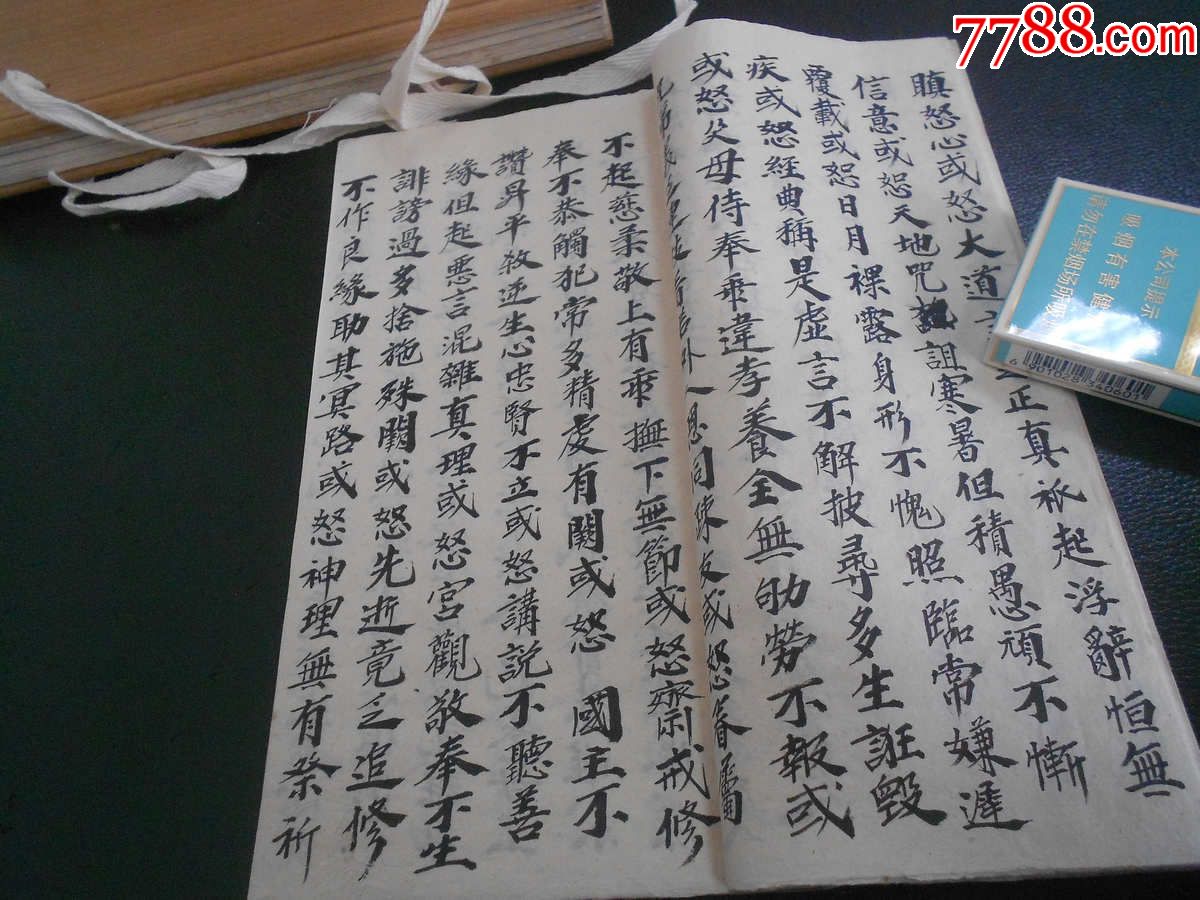 7788.com
瞋怒心或怒大道正真祇起浮辭恒無
信意或怒天地咒詛寒暑但積愚頑不慚
覆載或怒日月裸露身形不愧照臨常嫌遲
疾或怒經典稱是虛言不解披尋多生誑毀
或怒父母侍奉乖違孝養全無劬勞不報或
人恩同疎友或怒眷屬
不起慈柔敬上有乖撫下無節或怒齋戒修
奉不恭觸犯常多精虔有闕或怒 國主不
讚昇平逆生心忠賢不立或怒講說不聽善
緣但起惡言混雜真理或怒宮觀敬奉不生
誹謗過多捨施殊闕或怒先逝竟乏追修
不作良緣助其冥路或怒神理無有祭祈
本公司提示
吸烟有害健
请勿在禁烟场所吸